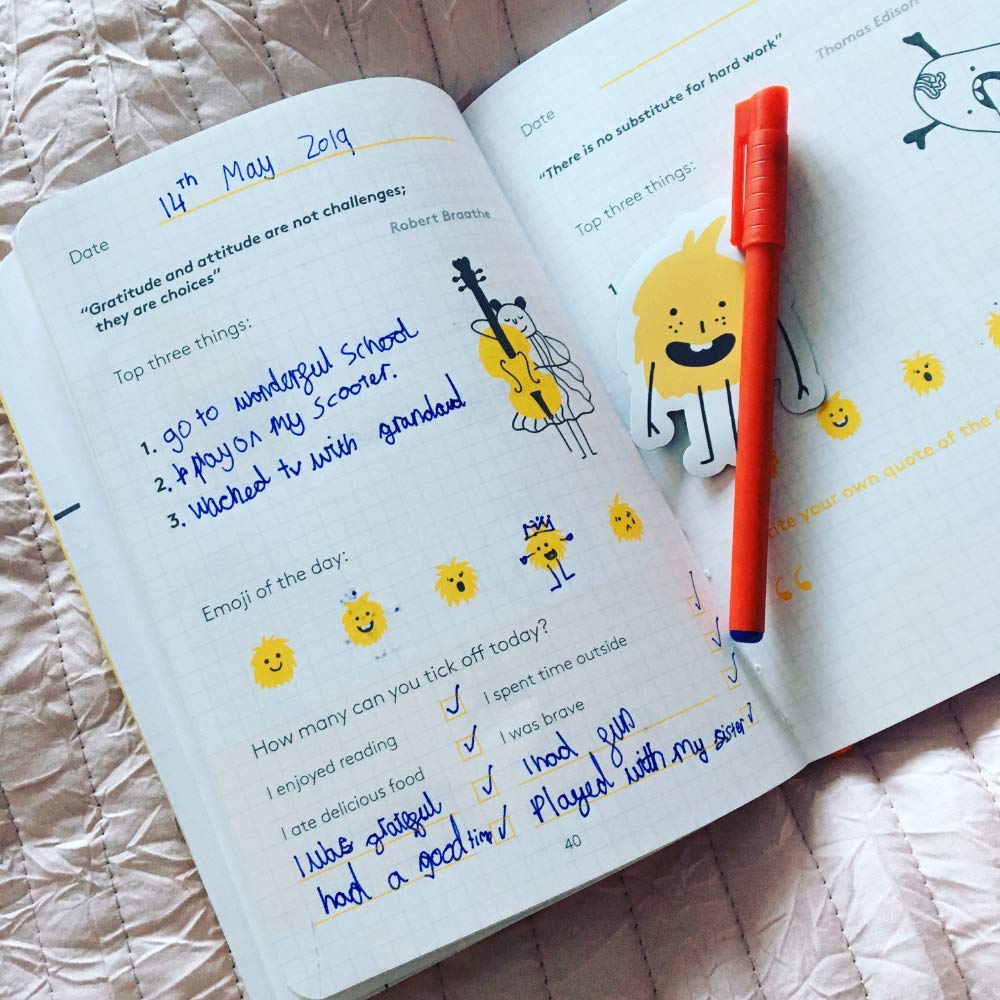 Date 14th May 2019
"Gratitude and attitude are not challenges;
they are choices"
Robert Braathe
Top three things:
1. go to wonderful school
2. play on my scooter.
3. wached tv with grandad
Emoji of the day:
How many can you tick off today?
I enjoyed reading I spent time outside
I ate delicious food I was brave
I was grateful I had fun
had a good time Played with my sister
40
Date
"There is no substitute for hard work"
Thomas Edison
Top three things:
1
your own quote of the
“